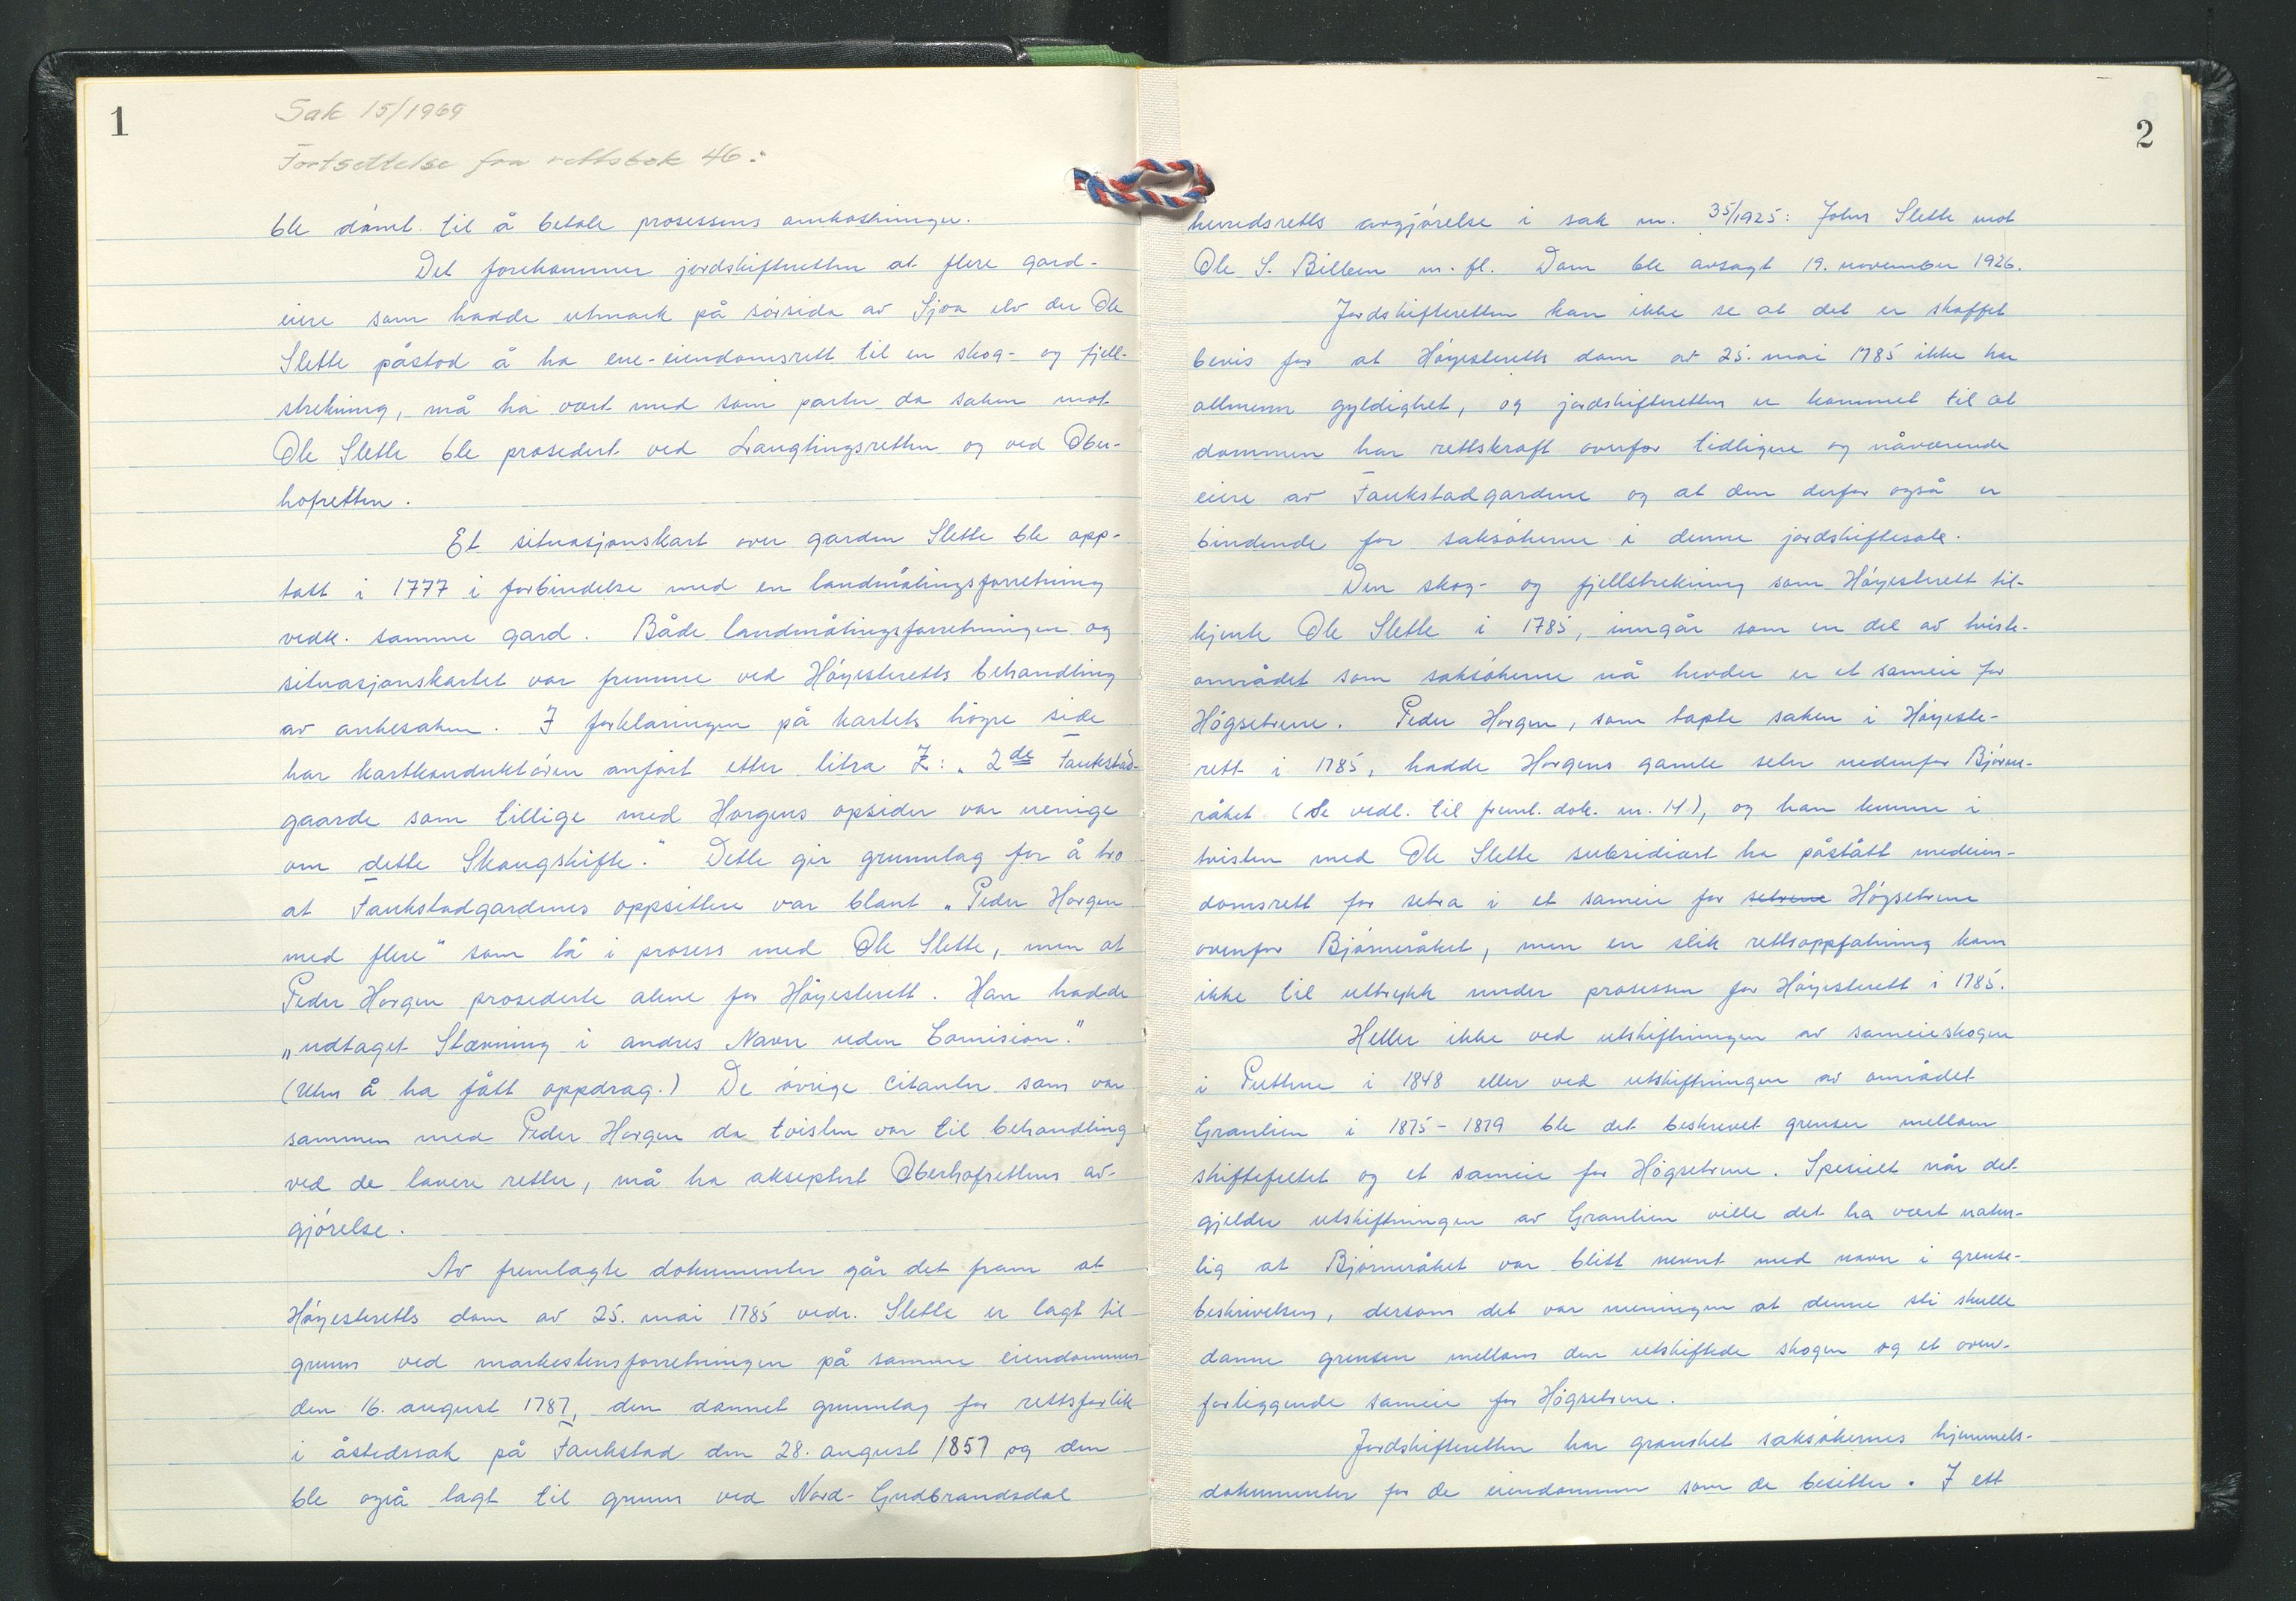 1
Sak 15/1969
Fortsettelse fra rettsbok 46:
ble dømt til å betale prosessens omkostninger.
Det forekommer jordskifteretten at flere gard-
eiere som hadde utmark på sørsida av Sjoa elv der Ole
Slette påstod å ha ene-eiendomsrett til en skog- og fjell-
strekning, må ha vært med som parter da saken mot
Ole Slette ble prosedert ved Laugtingsretten og ved Ober-
hofretten.
Et situasjonskart over garden Slette ble opp-
tatt i 1777 i forbindelse med en landmålingsforretning
vedk. samme gard. Både landmålingsforretningen og
situasjonskartet var fremme ved Høyesteretts behandling
av ankesaken. I forklaringen på kartets høgre side
har kartkonduktøren anført etter litra Z: „2de Faukstad-
gaarde som tillige med Horgens opsider var uenige
om dette Skougskifte." Dette gir grunnlag for å tro
at Faukstadgardenes oppsittere var blant „Peder Horgen
med flere" som lå i prosess med Ole Slette, men at
Peder Horgen prosederte alene for Høyesterett. Han hadde
„udtaget Stævning i andres Navn uden Comision."
(Uten å ha fått oppdrag.) De øvrige citanter som var
sammen med Peder Horgen da tvisten var til behandling
ved de lavere retter, må ha akseptert Oberhofrettens av-
gjørelse.
Av fremlagte dokumenter går det fram at
Høyesteretts dom av 25. mai 1785 vedr. Slette er lagt til
grunn ved markestensforretningen på samme eiendommen
den 16. august 1787, den dannet grunnlag for rettsforlik
i åstedssak på Faukstad den 28. august 1857 og den
ble også lagt til grunn ved Nord-Gudbrandsdal
2
herredsretts avgjørelse i sak nr. 35/1925: John Slette mot
Ole S. Billben m. fl. Dom ble avsagt 19. november 1926.
Jordskifteretten kan ikke se at det er skaffet
bevis for at Høyesteretts dom av 25. mai 1785 ikke har
allmenn gyldighet, og jordskifteretten er kommet til at
dommen har rettskraft ovenfor tidligere og nåværende
eiere av Faukstadgardene og at den derfor også er
bindende for saksøkerne i denne jordskiftesak.
Den skog- og fjellstrekning som Høyesterett til-
kjente Ole Slette i 1785, inngår som en del av tviste-
området som saksøkerne nå hevder er et sameie for
Høgsetrene. Peder Horgen, som tapte saken i Høyeste-
rett i 1785, hadde Horgens gamle seter nedenfor Bjørne-
råket (Se vedl. til freml. dok. nr. 14), og han kunne i
tvisten med Ole Slette subsidiært ha påstått medeien-
domsrett for setra i et sameie for setrene Høgsetrene
ovenfor Bjørneråket, men en slik rettsoppfatning kom
ikke til uttrykk under prosessen for Høyesterett i 1785.
Heller ikke ved utskiftningen av sameieskogen
i Puttene i 1848 eller ved utskiftningen av området
Granlien i 1875-1879 ble det beskrevet grenser mellom
skiftefeltet og et sameie for Høgsetrene. Spesielt når det
gjelder utskiftningen av Granlien ville det ha vært natur-
lig at Bjørneråket var blitt nevnt med navn i grense-
beskrivelsen, dersom det var meningen at denne sti skulle
danne grensen mellom den utskiftede skogen og et oven-
forliggende sameie for Høgsetrene.
Jordskifteretten har gransket saksøkernes hjemmels-
dokumenter for de eiendommer som de besitter. I ett